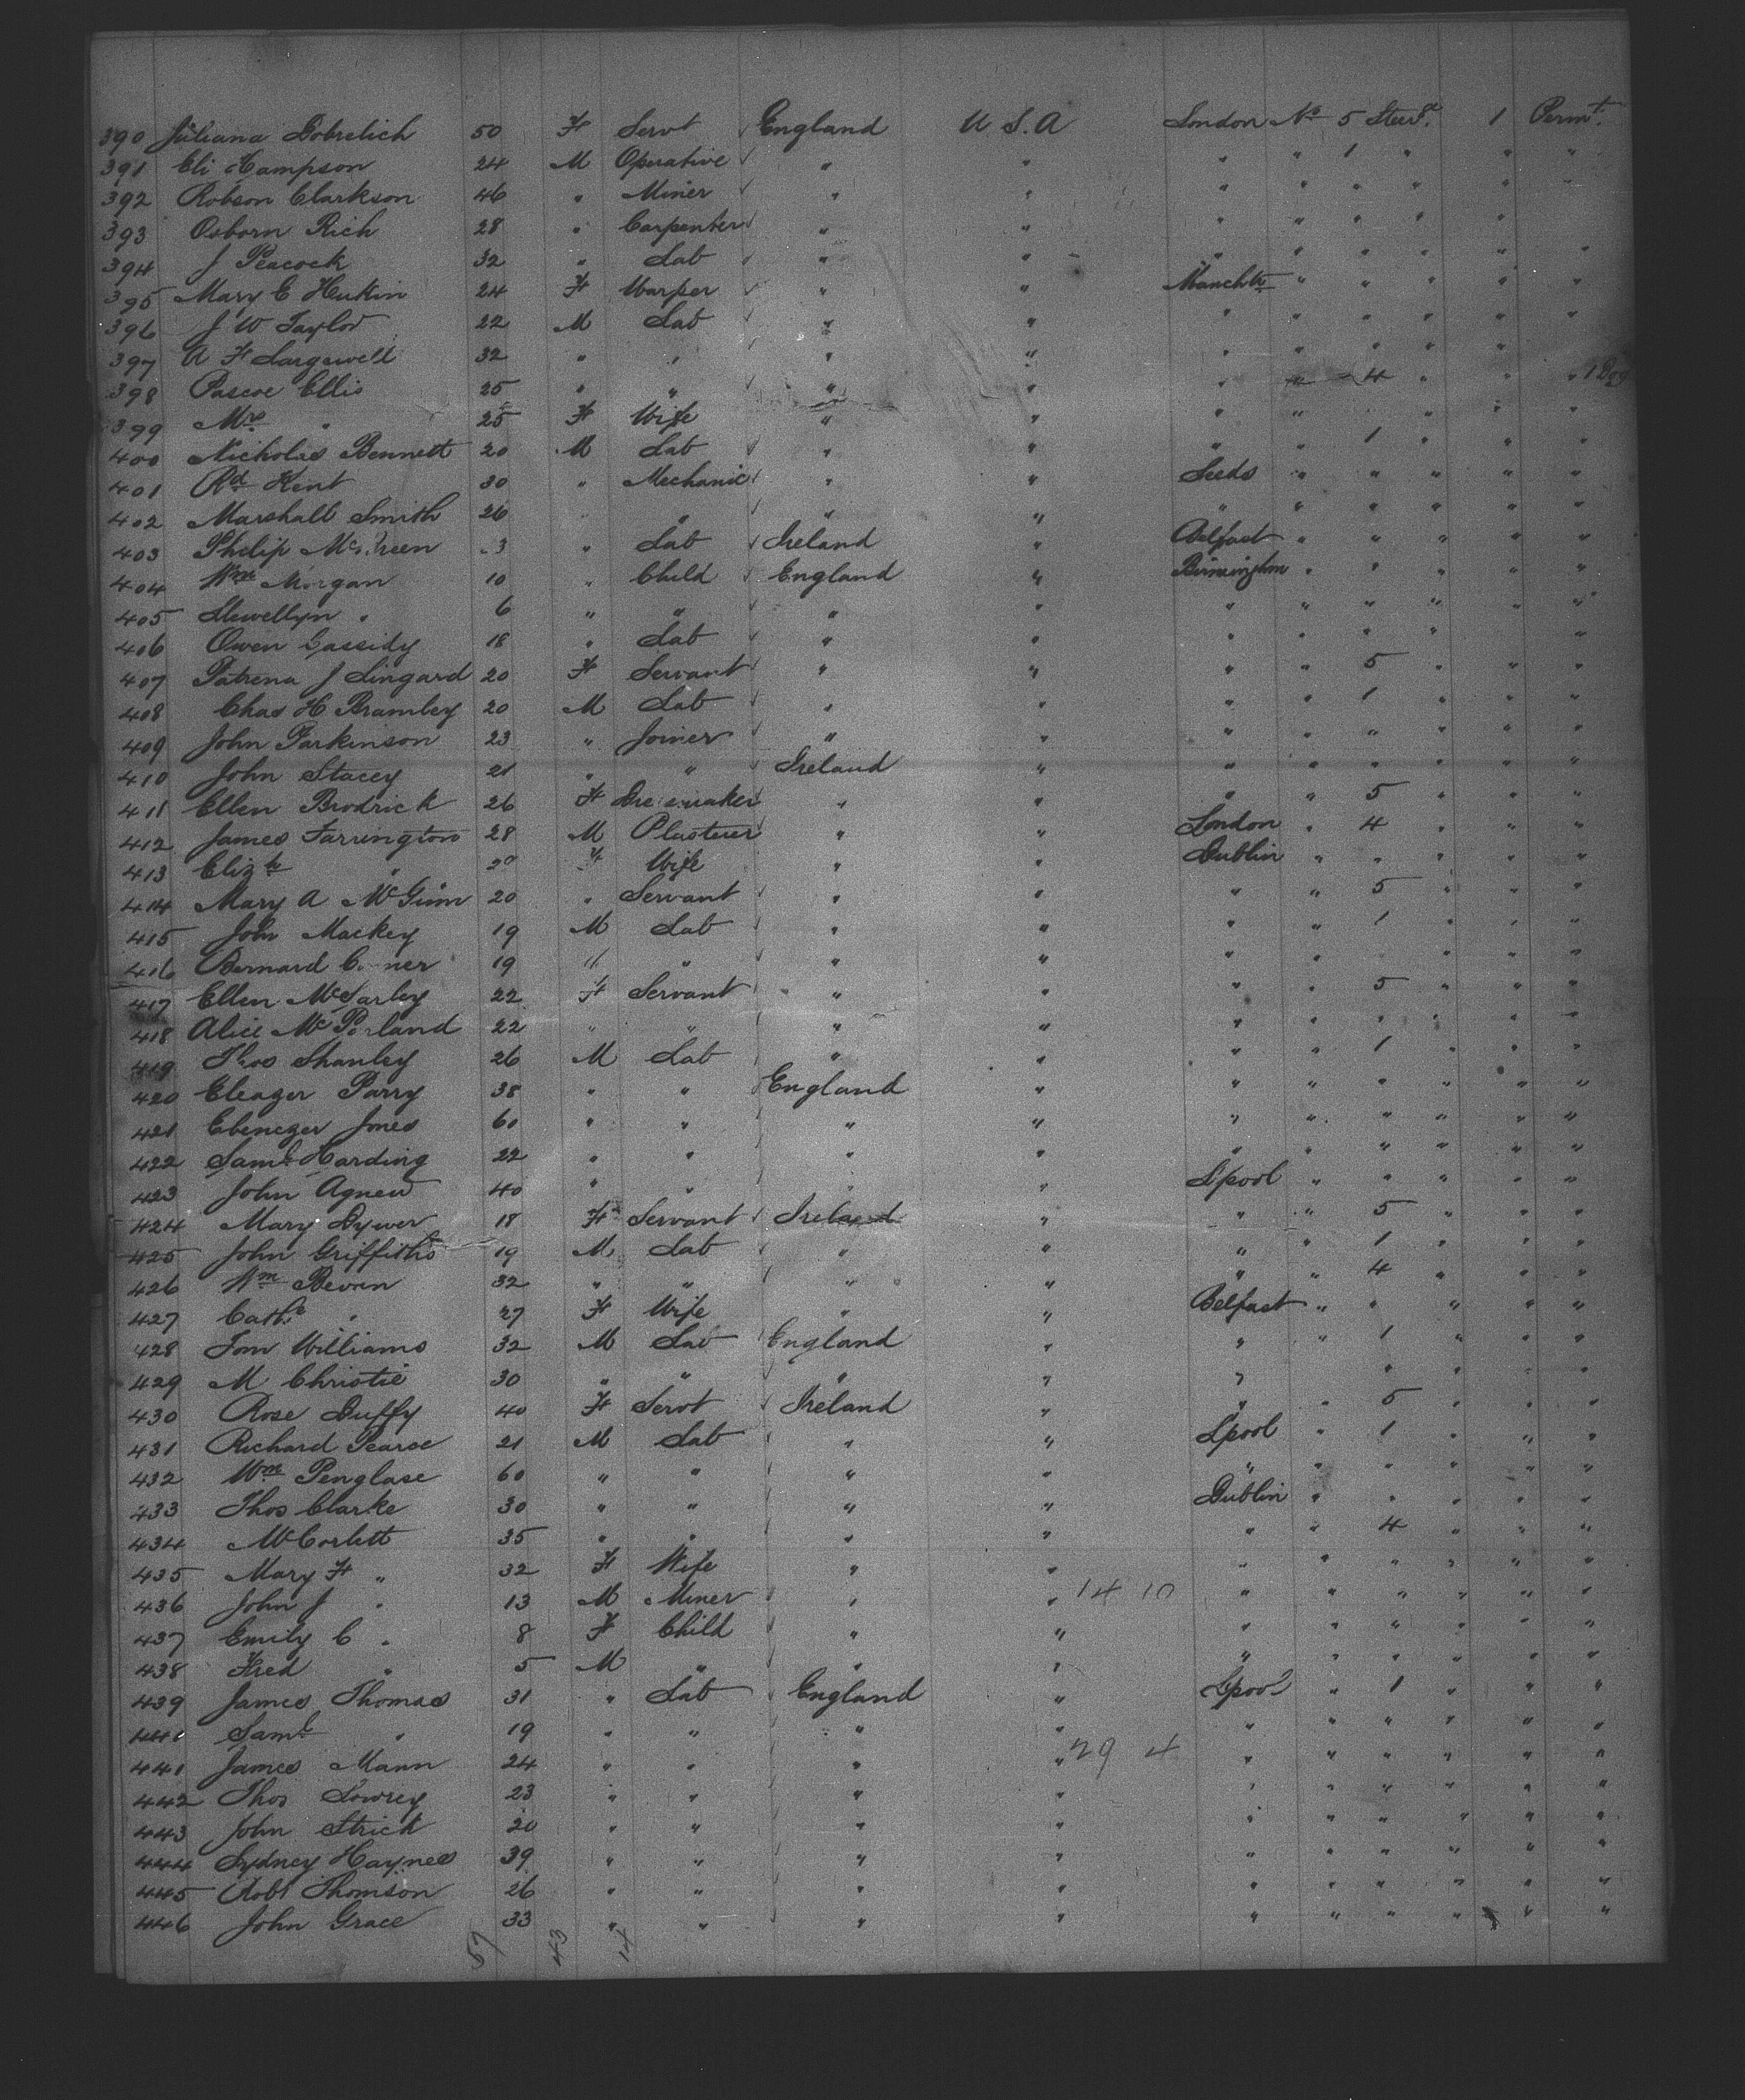 390 Juliana Dobrelich 50 F Servt England U S. A London No 5 Steerd. 1 Permt.
391 Eli Hampson 24 M Operative " " " " 1 " " "
392 Robson Clarkson 46 " Miner " " " " " " " "
393 Osborn Rich 28 " Carpenter " " " " " " "
394 J Peacock 32 " Lab " " " " " " " "
395 Mary E 24 F Warper " " Manchtr " " " " "
396 J W Taylor 22 M Lab " " " " " " " "
397 A F 32 " " " " " " " " "
398 Pascoe Ellis 25 " " " " " " 4 " " "
399 Mrs " 25 F Wife " " " " " " "
400 Nicholas Bennett 20 M Lab " " " " 1 " " "
401 Rd Kent 30 " Mechanic " " Leeds " " " " "
402 Marshall Smith 26 " " " " " " " " " "
403 Philip " Lab Ireland " Belfast " " " " "
404 Wm Morgan 10 " Child England " Birmingham " " " " "
405 Llewellyn " 6 " " " " " " " " " "
406 Owen Cassidy 18 " Lab " " " " " " "
407 Patrena J Lingard 20 F Servant " " " " 5 " " "
408 Chas H Bramley 20 M Lab " " " " 1 " " "
409 John Parkinson 23 " Joiner " " " " " " " "
410 John Stacey 21 " " Ireland " " " " " " "
411 Ellen Brodrick 26 F Dressmaker " " " " 5 " " "
412 James Farrington 28 M Plasterer " " London " 4 " " "
413 Elizth " F Wife " " Dublin " " " " "
414 Mary A McGinn 20 " Servant " " " " 5 " " "
415 John Mackey 19 M Lab " " " " 1 " " "
416 Bernard 19 " " " " " " " " "
417 Ellen McSarley 22 F Servant " " " " 5 " " "
418 Alice McPorland 22 " " " " " " " " " "
419 Thos Shanley 26 M Lab " " " " 1 " " "
420 Eleazer Parry 38 " " England " " " " " " "
421 Ebenezer Jones 60 " " " " " " " " " "
422 Saml Harding 22 " " " " " " " " " "
423 John Agnew 40 " " " " Lpool " " " " "
424 Mary Dywer 18 F Servant Ireland " " " 5 " " "
425 John Griffiths 19 M Lab " " " " 1 " " "
426 Wm Bevan 32 " " " " " " 4 " " "
427 Cathe " 27 F Wife " " Belfast " " " " "
428 Tom Williams 32 M Lab England " " " 1 " " "
429 M Christie 30 " " " " " " " " "
430 Rose Duffy 40 F Servt Ireland " " " 5 " " "
431 Richard Pearce 21 M Lab " " Lpool " 1 " " "
432 Wm Penglase 60 " " " " " " " " " "
433 Thos Clarke 30 " " " " Dublin " " " " "
434 McCorlett 35 " " " " " " 4 " " "
435 Mary F " 32 F Wife " " " " " " " "
436 John J " 13 M Miner " " 14 10 " " " " " "
437 Emily C " 8 F Child " " " " " " " "
438 Fred " 5 M " " " " " " " " "
439 James Thomas 31 " Lab England " Lpool " 1 " " "
440 Saml " 19 " " " " " " " " " "
441 James Mann 24 " " " " 29 4 " " " " " "
442 Thos Lowrey 23 " " " " " " " " " "
443 John Strick 20 " " " " " " " " " "
444 Sydney Haynes 39 " " " " " " " " " "
445 Robt Thomson 26 " " " " " " " " " "
446 John Grace 33 " " " " " " " " " "
57 43 14